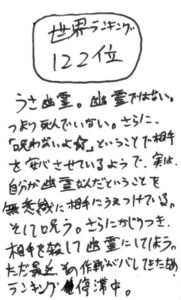 世界ランキング
122位
うさ幽霊。幽霊ではない。
つまり死んでいない。さらに、
「呪わないよ☆」ということで相手
を安心させているようで、実は、
自分が幽霊なんだということを
無意識に相手にうえつけている。
そして呪う。さらにかじりつき、
相手を殺して幽霊にしてしまう。
ただ最近その作戦がバレてきた為
ランキング停滞中。